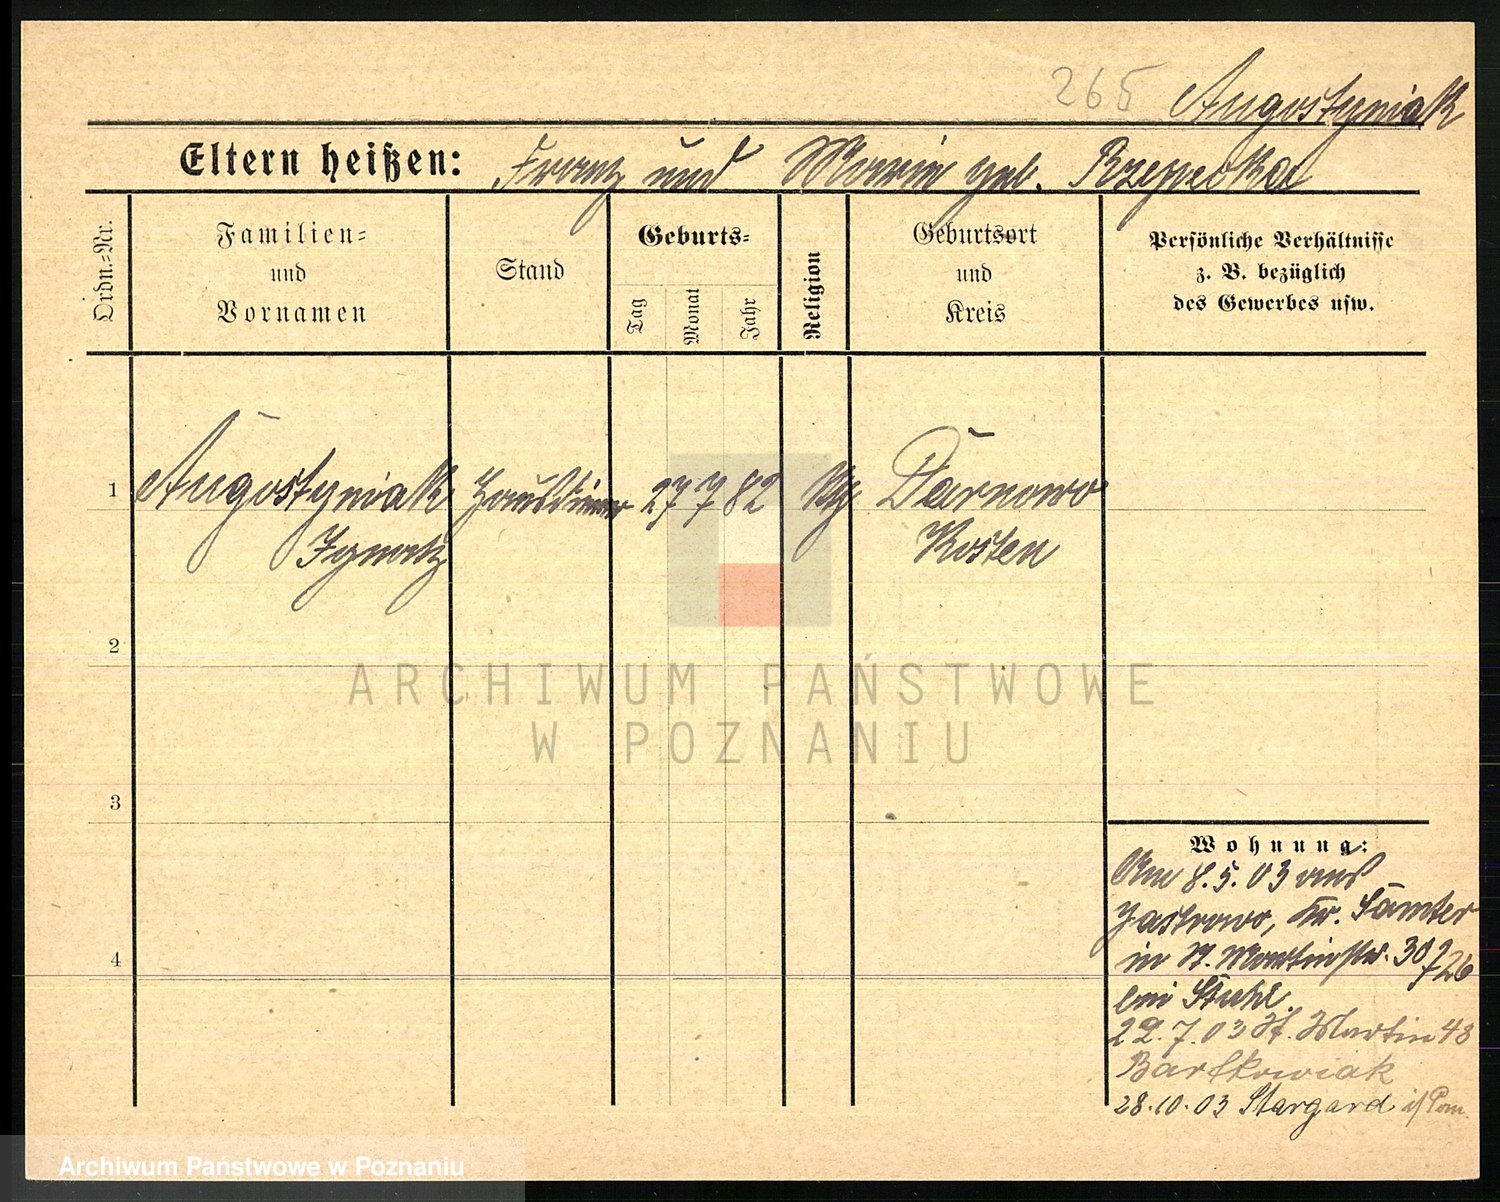 265 Augostyniak
Eltern heißen: Franz und Marie geb. Rzepecka
Ordn.-Nr.
Familien-
und
Vornamen
Stand
Geburts-
Tag
Monat
Jahr
Religion
Geburtsort
und
Kreis
Persönliche Verhältnisse
z. B. bezüglich
des Gewerbes usw.
1 Augostyniak Hausdiener 27 7 82 Darnowo
Ignatz Kosten
2
3
4
ARCHIWUM PAŃSTWOWE
W POZNANIU
Wohnung:
Am 8.5.03 aus
Jastrowo, Kr. Samter
in St. Martinstr. 30
bei Stuhl.
29.7.03 St. Martin 48
Bartkowiak
28.10.03 Stargard i/Pom.
Archiwum Państwowe w Poznaniu